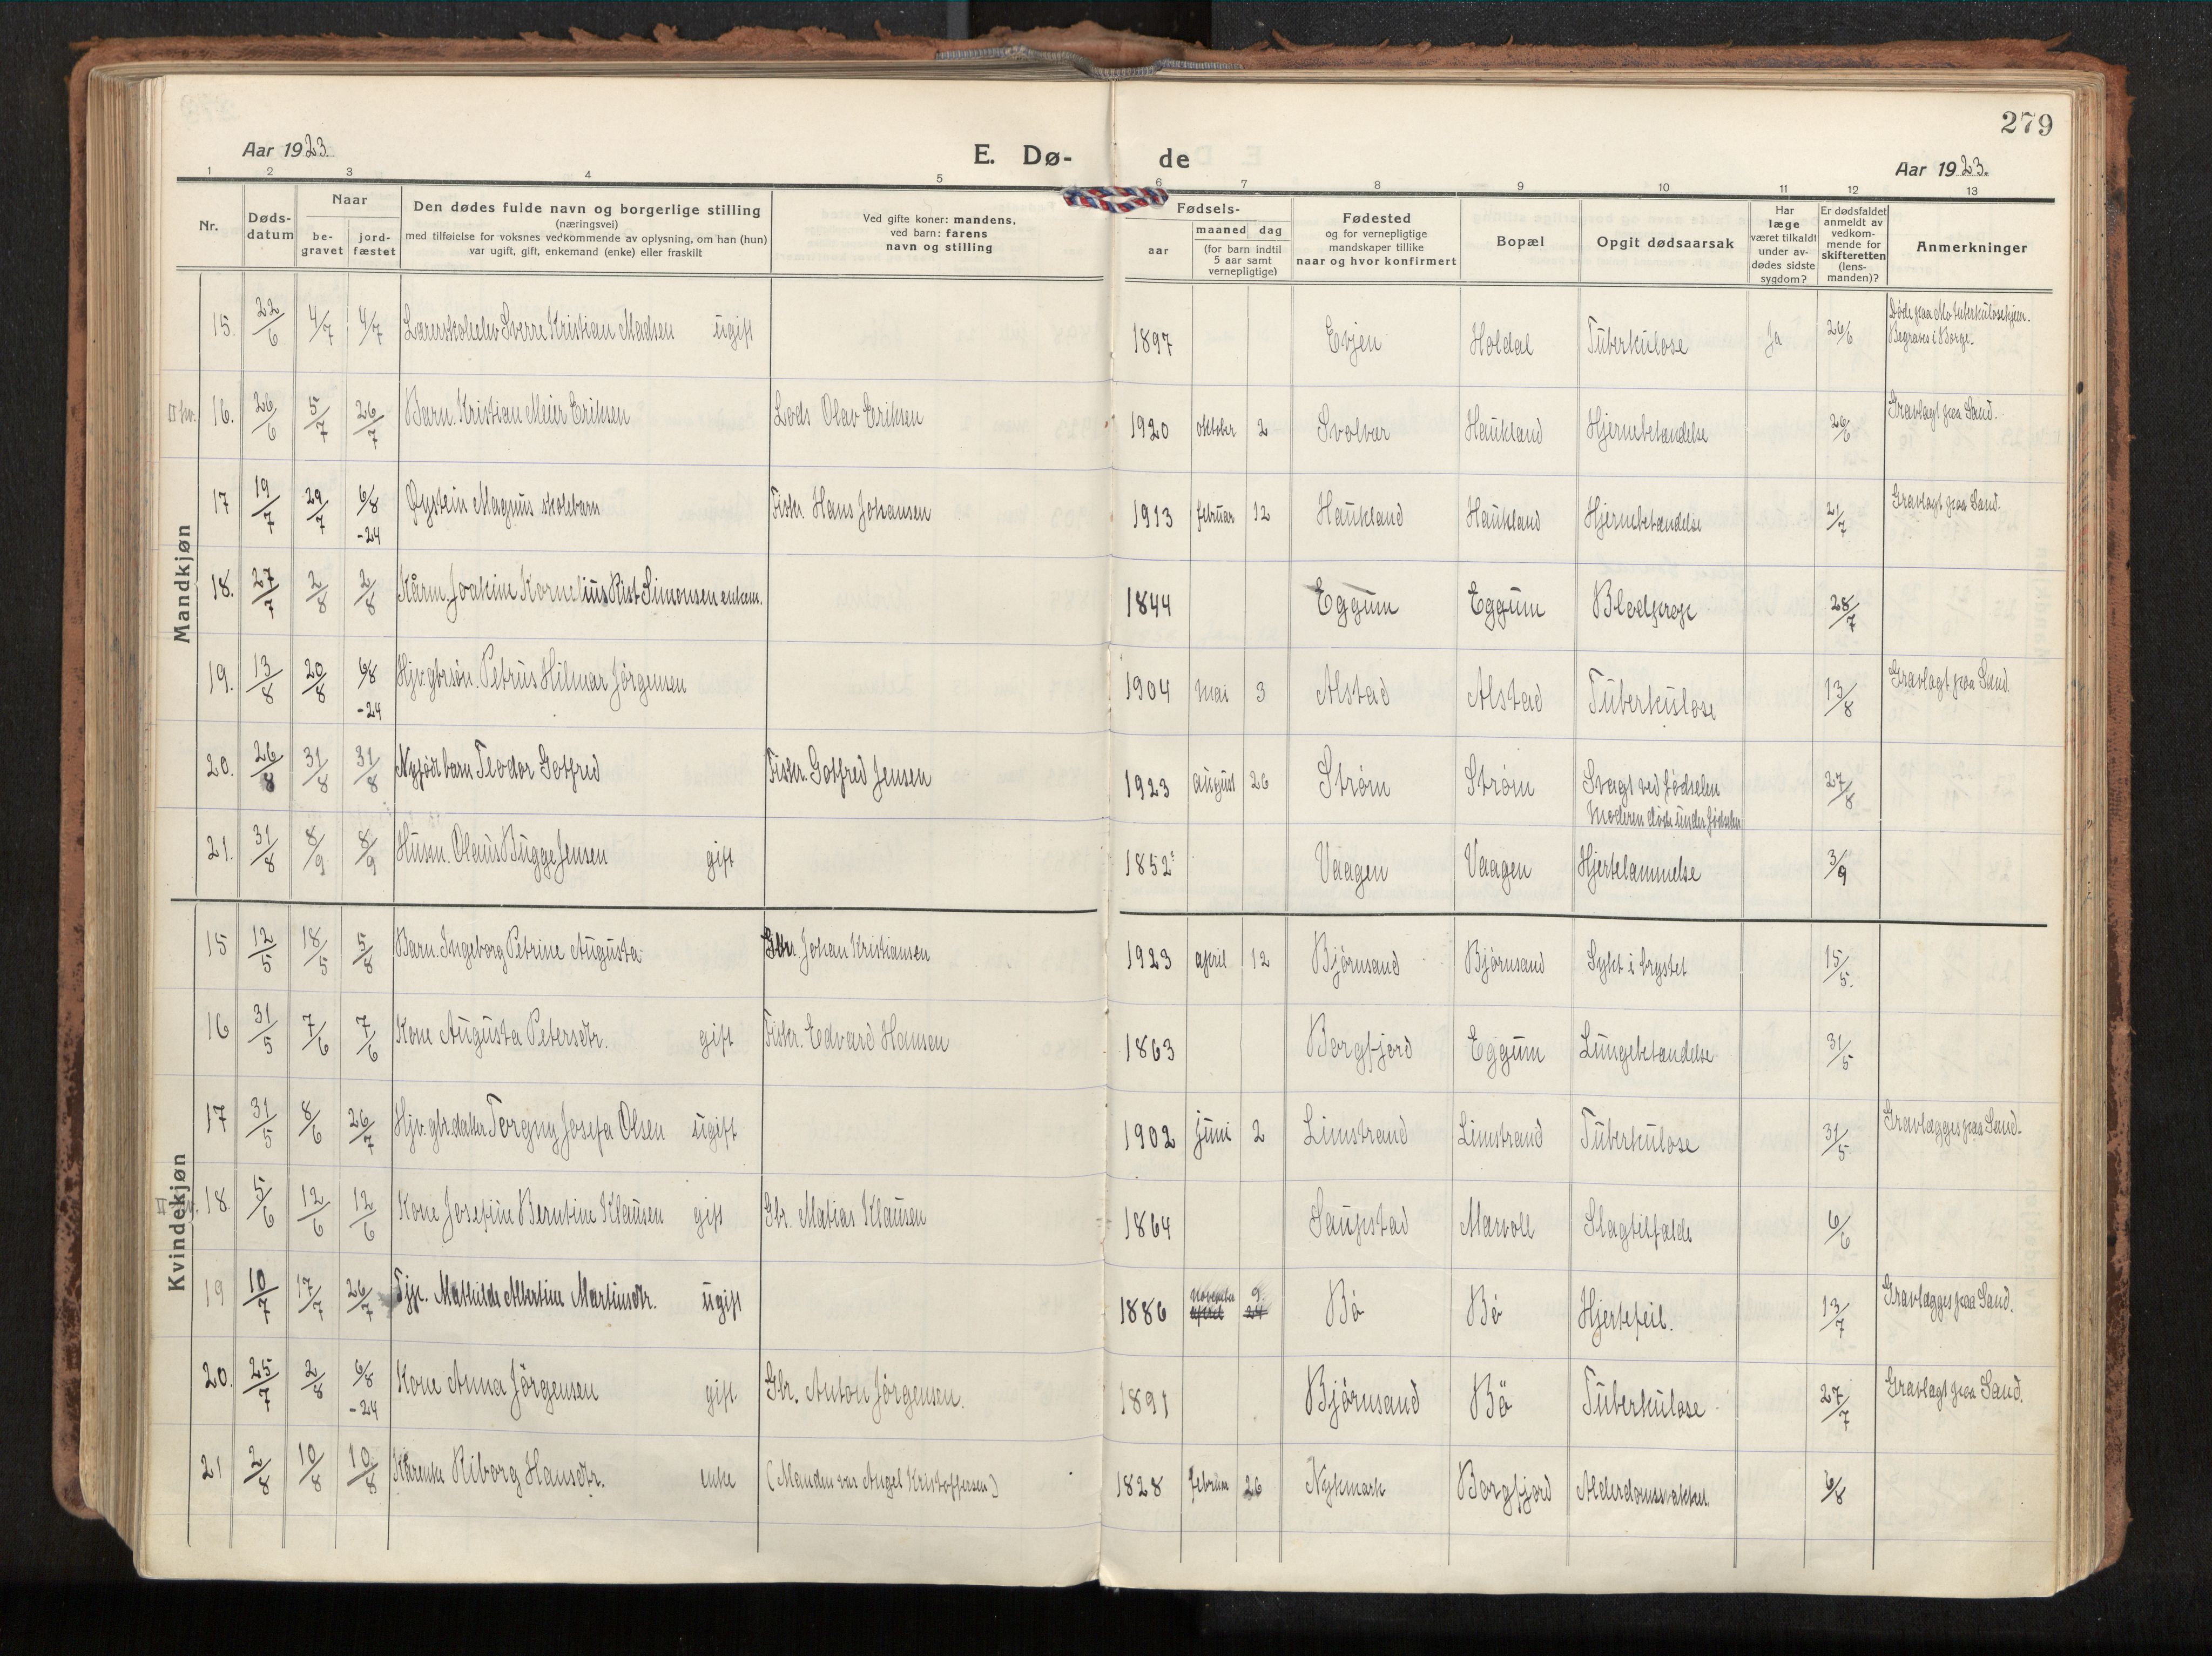 279
Aar 1923.
E. Dø- de
Aar 1923.
1 2 3 4 5 6 7 8 9 10 11 12 13
Nr.
Døds-
datum
Naar
be-
gravet
jord-
fæstet
Den dødes fulde navn og borgerlige stilling
(næringsvei)
med tilføielse for voksnes vedkommende av oplysning, om han (hun)
var ugift, gift, enkemand (enke) eller fraskilt
Ved gifte koner: mandens,
ved barn: farens
navn og stilling
Fødsels-
aar
maaned dag
(for barn indtil
5 aar samt
vernepligtige)
Fødested
og for vernepligtige
mandskaper tillike
naar og hvor konfirmert
Bopæl
Opgit dødsaarsak
Har
læge
været tilkaldt
under av-
dødes sidste
sygdom?
Er dødsfaldet
anmeldt av
vedkom-
mende for
skifteretten
(lens-
manden)?
Anmerkninger
Mandkjøn
15. 22/6 4/7 4/7 Lærerskoleelev Sverre Kristian Madsen ugift 1897 Evjen Holdal Tuberkulose Ja 26/6 Døde paa Mo tuberkulosehjem.
Begraves i Borge.
16. 26/6 5/7 26/7 Barn. Kristian Meier Eriksen Lods Olav Eriksen 1920 oktober 2 Svolvær Haukland Hjernebetændelse 26/6 Gravlagt paa Sand.
17 19/7 29/7 6/8 -24 Øystein Magnus skolebarn Fisker. Hans Johansen 1913 februar 12 Haukland Haukland Hjernebetændelse 21/7 Gravlagt paa Sand.
18. 27/7 2/8 2/8 Kårm. Joakim Kornelius Rist Simonsen enkem. 1844 Eggum Eggum Blodprop 28/7
19. 13/8 20/8 6/8 -24 Hjv. gbr.søn. Petrus Hilmar Jørgensen 1904 mai 3 Alstad Alstad Tuberkulose 13/8 Gravlagt paa Sand.
20. 26/8 31/8 31/8 Nyfødt barn Teodor Gotfred Fisker. Gotfred Jensen 1923 august 26 Strøm Strøm Svagt ved fødselen 27/8
Moderen døde under fødselen
21. 31/8 8/9 8/9 Husm. Olaus Bugge Jensen gift 1852 Vaagen Vaagen Hjertelammelse 3/9
Kvindekjøn
15 12/5 18/5 5/8 Barn. Ingeborg Petrine Augusta Gbr. Johan Kristiansen 1923 april 12 Bjørnsand Bjørnsand Sykt i brystet 15/5.
16 31/5 7/6 7/6 Kone Augusta Petersdtr. gift Fisker. Edvard Hansen 1863 Borgfjord Eggum Lungebetændelse 31/5
17 31/5 8/6 26/7 Hjv. gbr.datter Torgny Josefa Olsen ugift 1902 juni 2 Limstrand Limstrand Tuberkulose 31/5 Gravlægges paa Sand.
18. 5/6 12/6 12/6 Kone Josefine Berntine Klausen gift Gbr. Matias Klausen 1864 Saupstad Marvoll Slagtilfælde 6/6
19 10/7 17/7 26/7 Tjp. Mathilde Albertine Martinsdtr. ugift 1886 november april 9 24 Bø Bø Hjertefeil. 13/7 Gravlægges paa Sand.
20. 25/7 2/8 6/8 -24 Kone Anna Jørgensen gift Gbr. Anton Jørgensen. 1891 Bjørnsand Bø Tuberkulose 27/7 Gravlagt paa Sand.
21 2/8 10/8 10/8 Kårenke Riborg Hansdtr. enke (Manden var Angel Kristoffersen) 1828 februar 26 Nykmark Borgfjord Alderdomssvakhet 6/8